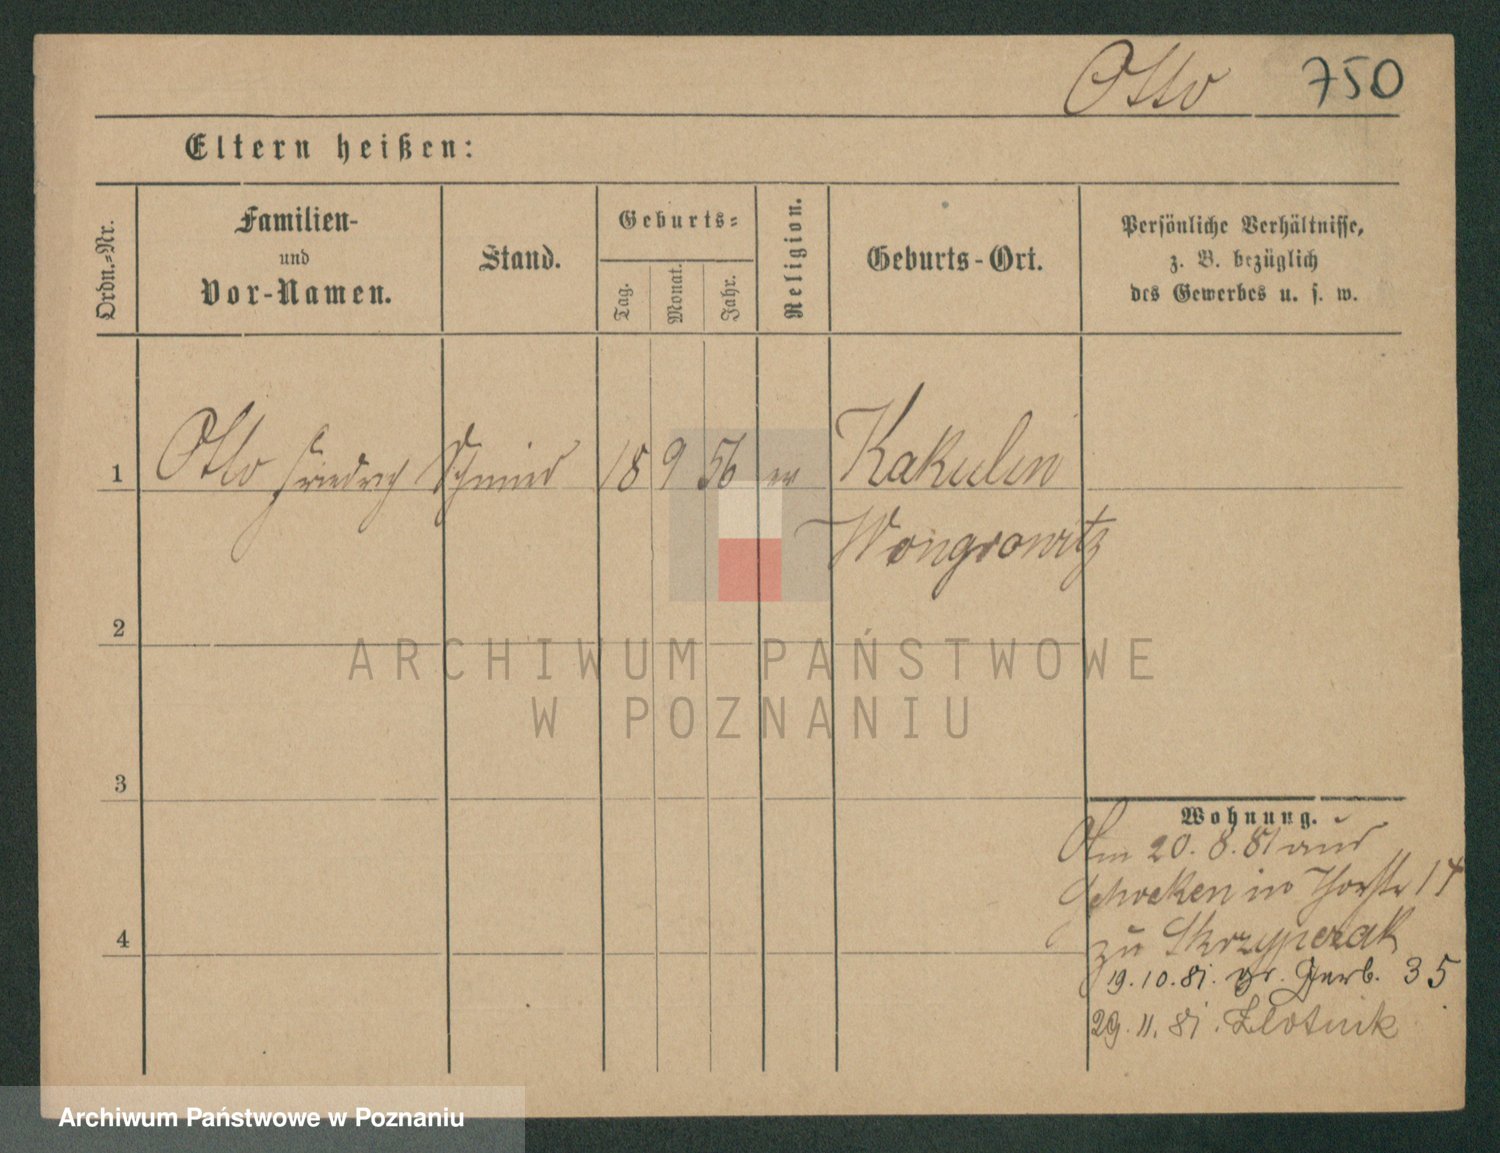 Otto 750
Eltern heißen:
Ordn.-Nr.
Familien-
und
Vor-Namen.
Stand.
Geburts-
Tag.
Monat.
Jahr.
Religion.
Geburts-Ort.
Persönliche Verhältnisse,
z. B. bezüglich
des Gewerbes u. s. w.
1 Otto Friedrich Schmied 18 9 56 ev Kakulin
Wongrowitz
2
ARCHIWUM PAŃSTWOWE
W POZNANIU
3
Wohnung.
Am 20. 8. 81 aus
Schocken in Thorstr 14
zu Skrzypczak
4
19. 10. 81. gr. Gerb. 35
29. 11. 81. Zlotnik
Archiwum Państwowe w Poznaniu